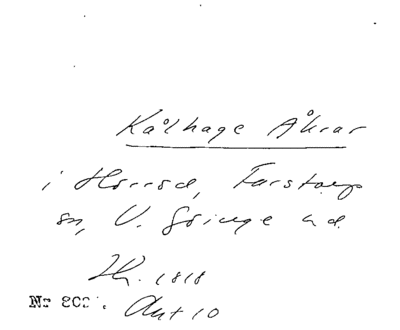 Kålhage Åkrar
i Horröd, Farstorp
sn, V. Göinge hd.
1818
Nr 802.
Akt 10